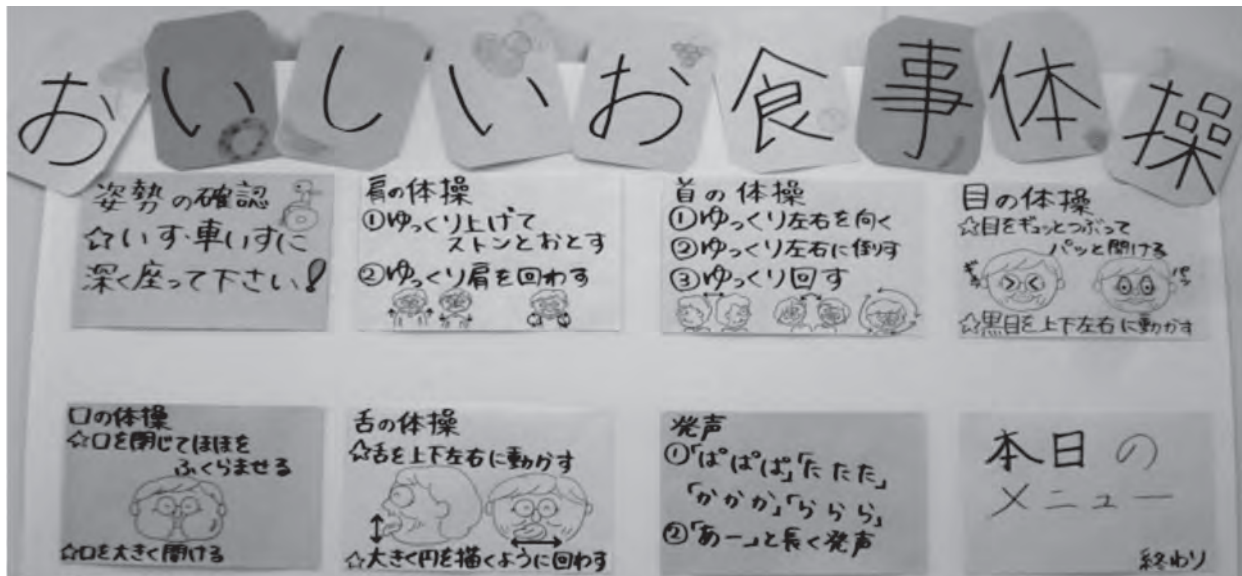 おいしいお食事体操
姿勢の確認
☆いす・車いすに
深く座って下さい!
肩の体操
①ゆっくり上げて
ストンとおとす
②ゆっくり肩を回わす
首の体操
①ゆっくり左右を向く
②ゆっくり左右に倒す
③ゆっくり回す
目の体操
☆目をギュッとつぶって
パッと開ける
ギュッ
パッ
☆黒目を上下左右に動かす
口の体操
☆口を閉じてほほを
ふくらませる
☆口を大きく開ける
舌の体操
☆舌を上下左右に動かす
☆大きく円を描くように回わす
発声
①「ぱぱぱ」「たたた」
「かかか」「ららら」
②「あー」と長く発声
本日の
メニュー
終わり